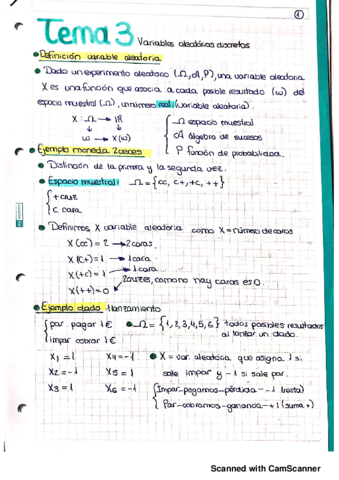 ①
Tema 3 Variables aleatorias discretas
• Definición variable aleatoria
• Dado un experimento aleatorio (Ω, A, P), una variable aleatoria
X es una función que asocia a cada posible resultado (ω) del
espacio muestral (Ω), un número real. (variable aleatoria).
X: Ω → IR
ω → X(ω)
{ Ω espacio muestral
A álgebra de sucesos
P función de probabilidad.
• Ejemplo moneda 2 veces
• Distinción de la primera y la segunda vez.
• Espacio muestral: Ω = {cc, c+, +c, ++}
{ + cruz
c cara
• Definimos X variable aleatoria como X = número de caras
X (cc) = 2 → 2 caras.
X (c+) = 1 → 1 cara
X (+c) = 1 → 1 cara
X (++) = 0 2 cruces, como no hay caras es 0.
• Ejemplo dado 1 lanzamiento
{ par. pagar 1€ • Ω = {1, 2, 3, 4, 5, 6} todos posibles resultados
impar cobrar 1€ al lanzar un dado.
X1 = 1 X4 = -1 • X = var. aleatoria que asigna 1 si
X2 = -1 X5 = 1 sale impar y -1 si sale par.
X3 = 1 X6 = -1 { Impar-pagamos-pérdida - -1 (resta)
Par-cobramos-ganancia - +1 (suma +)
Scanned with CamScanner